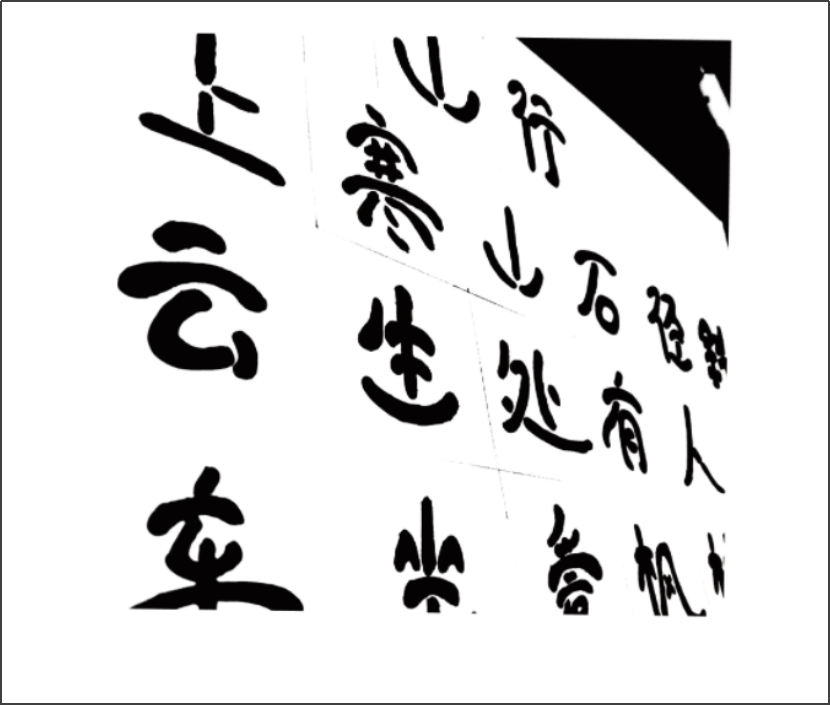 山行
上寒山石径斜
云生处有人
车坐爱枫